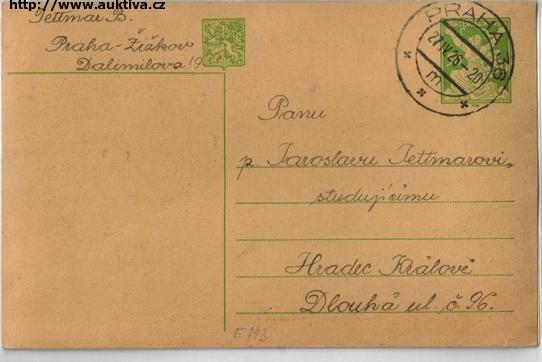 http://www.auktiva.cz
Tettmar B.
Praha-Žižkov
Dalimilova 19
PRAHA 36
27.IV.26.-20
m
Panu
p. Jaroslavu Tettmarovi,
studujícímu
Hradec Králové
Dlouhá ul. č. 96.
E/13